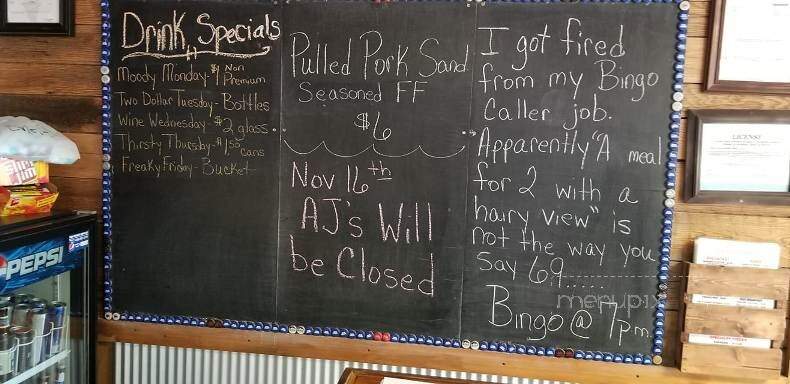 Drink Specials
Moody Monday - $1 Non Premium
Two Dollar Tuesday - Bottles
Wine Wednesday - $2 glass
Thirsty Thursday - $1.50 cans
Freaky Friday - Bucket
Pulled Pork Sand
Seasoned FF
$6
Nov 16th
AJ's Will
be Closed
I got fired
from my Bingo
Caller job.
Apparently "A meal
for 2 with a
hairy view" is
not the way you
say 69.....
Bingo @ 7pm
PEPSI
LICENSE
Slim Jim
menupix